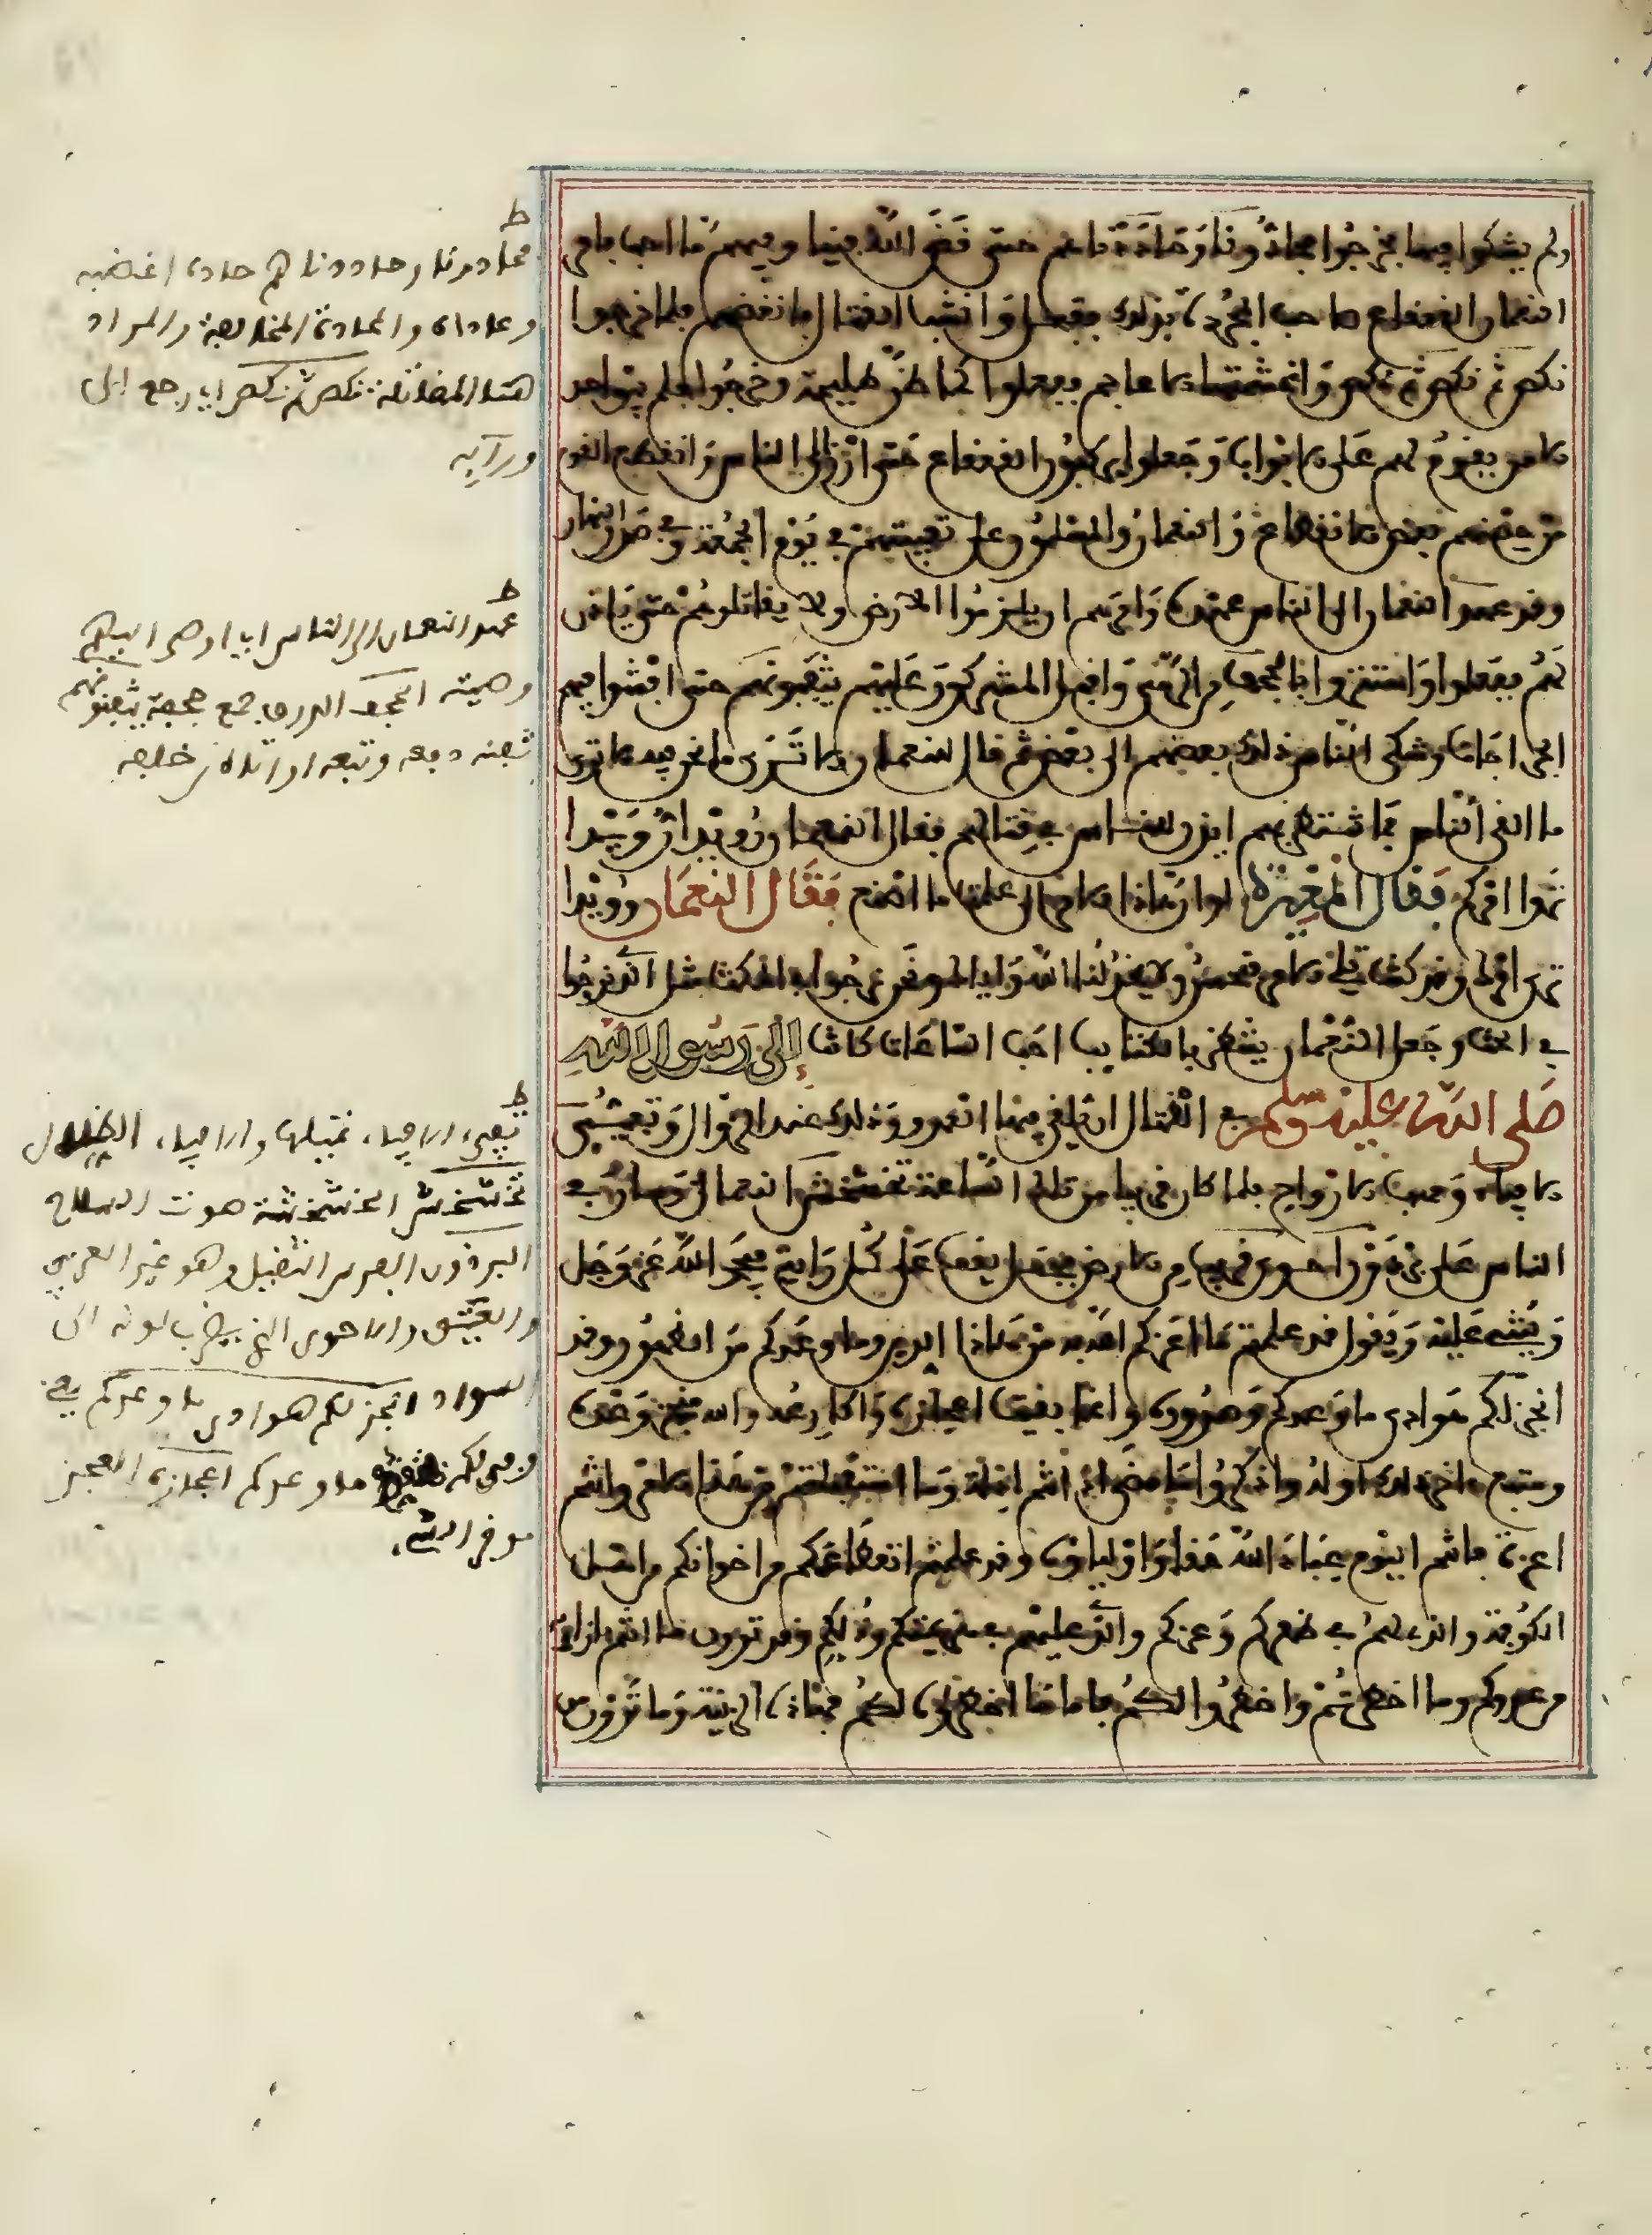 ولم يشكوا فيها فخرجوا فجادونا وحاددناهم حتى قضى الله فينا وفيهم ما احب فامر
النعمان القعقاع صاحب المجردة بذلك ففعل وانشب القتال فانغضهم فلما خرجوا
نكص ثم نكص ثم نكص واغتنمتها الاعاجم ففعلوا كما ظن طليحة وخرجوا فلم يبق احد
الا من يقوم لهم على الابواب وجعلوا يركبون القعقاع حتى ارز الى الناس وانقطع القوم
من حصنهم بعض الانقطاع والنعمان والمسلمون على تعبيتهم في يوم الجمعة في صدر النهار
وقد عهد النعمان الى الناس عهده وامرهم ان يلزموا الارض ولا يقاتلوهم حتى ياذن
لهم ففعلوا واستتروا بالحجف من الرمي واقبل المشركون عليهم يثفنونهم حتى افشوا فيهم
الجراحات وشكى الناس ذلك بعضهم الى بعض ثم قال للنعمان الا ترى ما نحن فيه الا ترى
ما لقي الناس فما تنتظر بهم ايذن للناس في قتالهم فقال النعمان رويدا رويدا
تروا امركم فقال المغيرة لو ان هاذا الامر الي علمت ما اصنع فقال النعمان رويدا
ترى امرك وقد كنت تلي الامر فتحسن ولا يخذلنا الله واياك ونحن نرجوا في المكث مثل الذي ترجوا
في الحث وجعل النعمان ينتظر بالكتايب احب الساعات كانت إلى رسول الله
صلى الله عليه وسلم في القتال ان يلقى فيها العدو وذلك عند الزوال وتفيئ
الافياء ومهب الارواح فلما كان قريبا من تلك الساعة تخشخش النعمان وسار في
الناس على برذون احوى قريب من الارض فجعل يقف على كل راية فيحمد الله عز وجل
ويثني عليه ويقول قد علمتم ما اعزكم الله به من هاذا الدين وما وعدكم من الظهور وقد
انجز لكم هوادي ما وعدكم وصدوره وانما بقيت اعجازه واكارعه والله منجز وعده
ومتبع ءاخر ذلك اوله واذكروا ما مضى اذ انتم اذلة وما استقبلتم من هذا الامر وانتم
اعزة فانتم اليوم عباد الله حقا واولياؤه وقد علمتم انقطاعكم من اخوانكم من اهل
الكوفة والذي لهم في ظفركم وعزكم والذي عليهم في هزيمتكم وذلكم وقد ترون ما انتم بازائه
من عدوكم وما اخطرتم واخطروا لكم فاما ما اخطروا لكم فهاذه الزينة وما ترون من
ط
فحادونا وحاددناهم حاده اغضبه
وعاداه والمحادة المخالفة والمراد
هنا المقاتلة نكص ثم نكص اي رجع الى
ورآيه
ط
عهد النعمان الى الناس اي اوصى اليهم
وصيته الحجف الدرق جمع حجفة يثفنونهم
ثفنه دفعه وتبعه او اتاه من خلفه
ط
تفيئ الافياء تقبلها والافياء الظلال
تخشخش الخشخشة صوت السلاح
البرذون الفرس الثقيل وهو غير العربي
والعتيق والاحوى الذي يضرب لونه الى
السواد انجز لكم هوادي ما وعدكم يعني
ما وعدكم اعجازه العجز
موخر الشيء